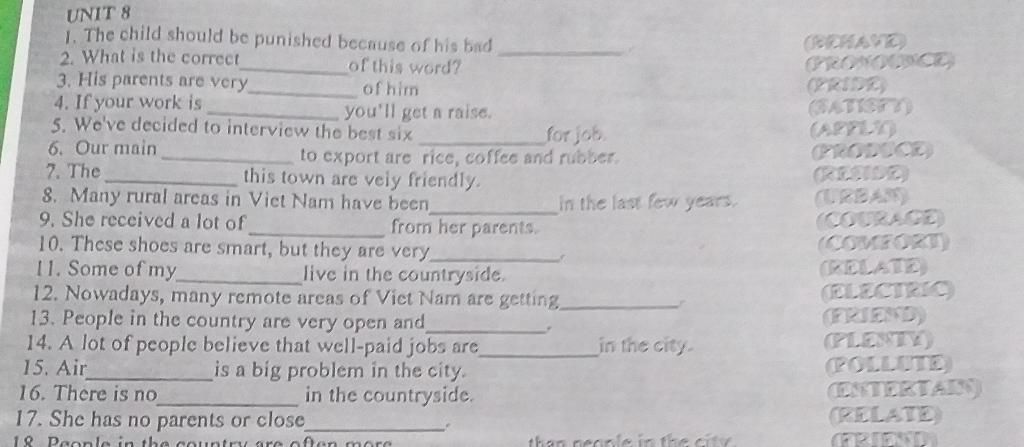 UNIT 8
1. The child should be punished because of his bad ____________. (BEHAVE)
2. What is the correct____________of this word? (PRONOUNCE)
3. His parents are very____________ of him (PRIDE)
4. If your work is ____________ you'll get a raise. (SATISFY)
5. We've decided to interview the best six ____________for job. (APPLY)
6. Our main ____________ to export are rice, coffee and rubber. (PRODUCE)
7. The ____________ this town are veiy friendly. (RESIDE)
8. Many rural areas in Viet Nam have been____________in the last few years. (URBAN)
9. She received a lot of ____________ from her parents. (COURAGE)
10. These shoes are smart, but they are very____________. (COMFORT)
11. Some of my____________live in the countryside. (RELATE)
12. Nowadays, many remote areas of Viet Nam are getting____________. (ELECTRIC)
13. People in the country are very open and____________. (FRIEND)
14. A lot of people believe that well-paid jobs are____________in the city. (PLENTY)
15. Air____________is a big problem in the city. (POLLUTE)
16. There is no____________ in the countryside. (ENTERTAIN)
17. She has no parents or close____________. (RELATE)
18. People in the country are often more____________than people in the city. (FRIEND)